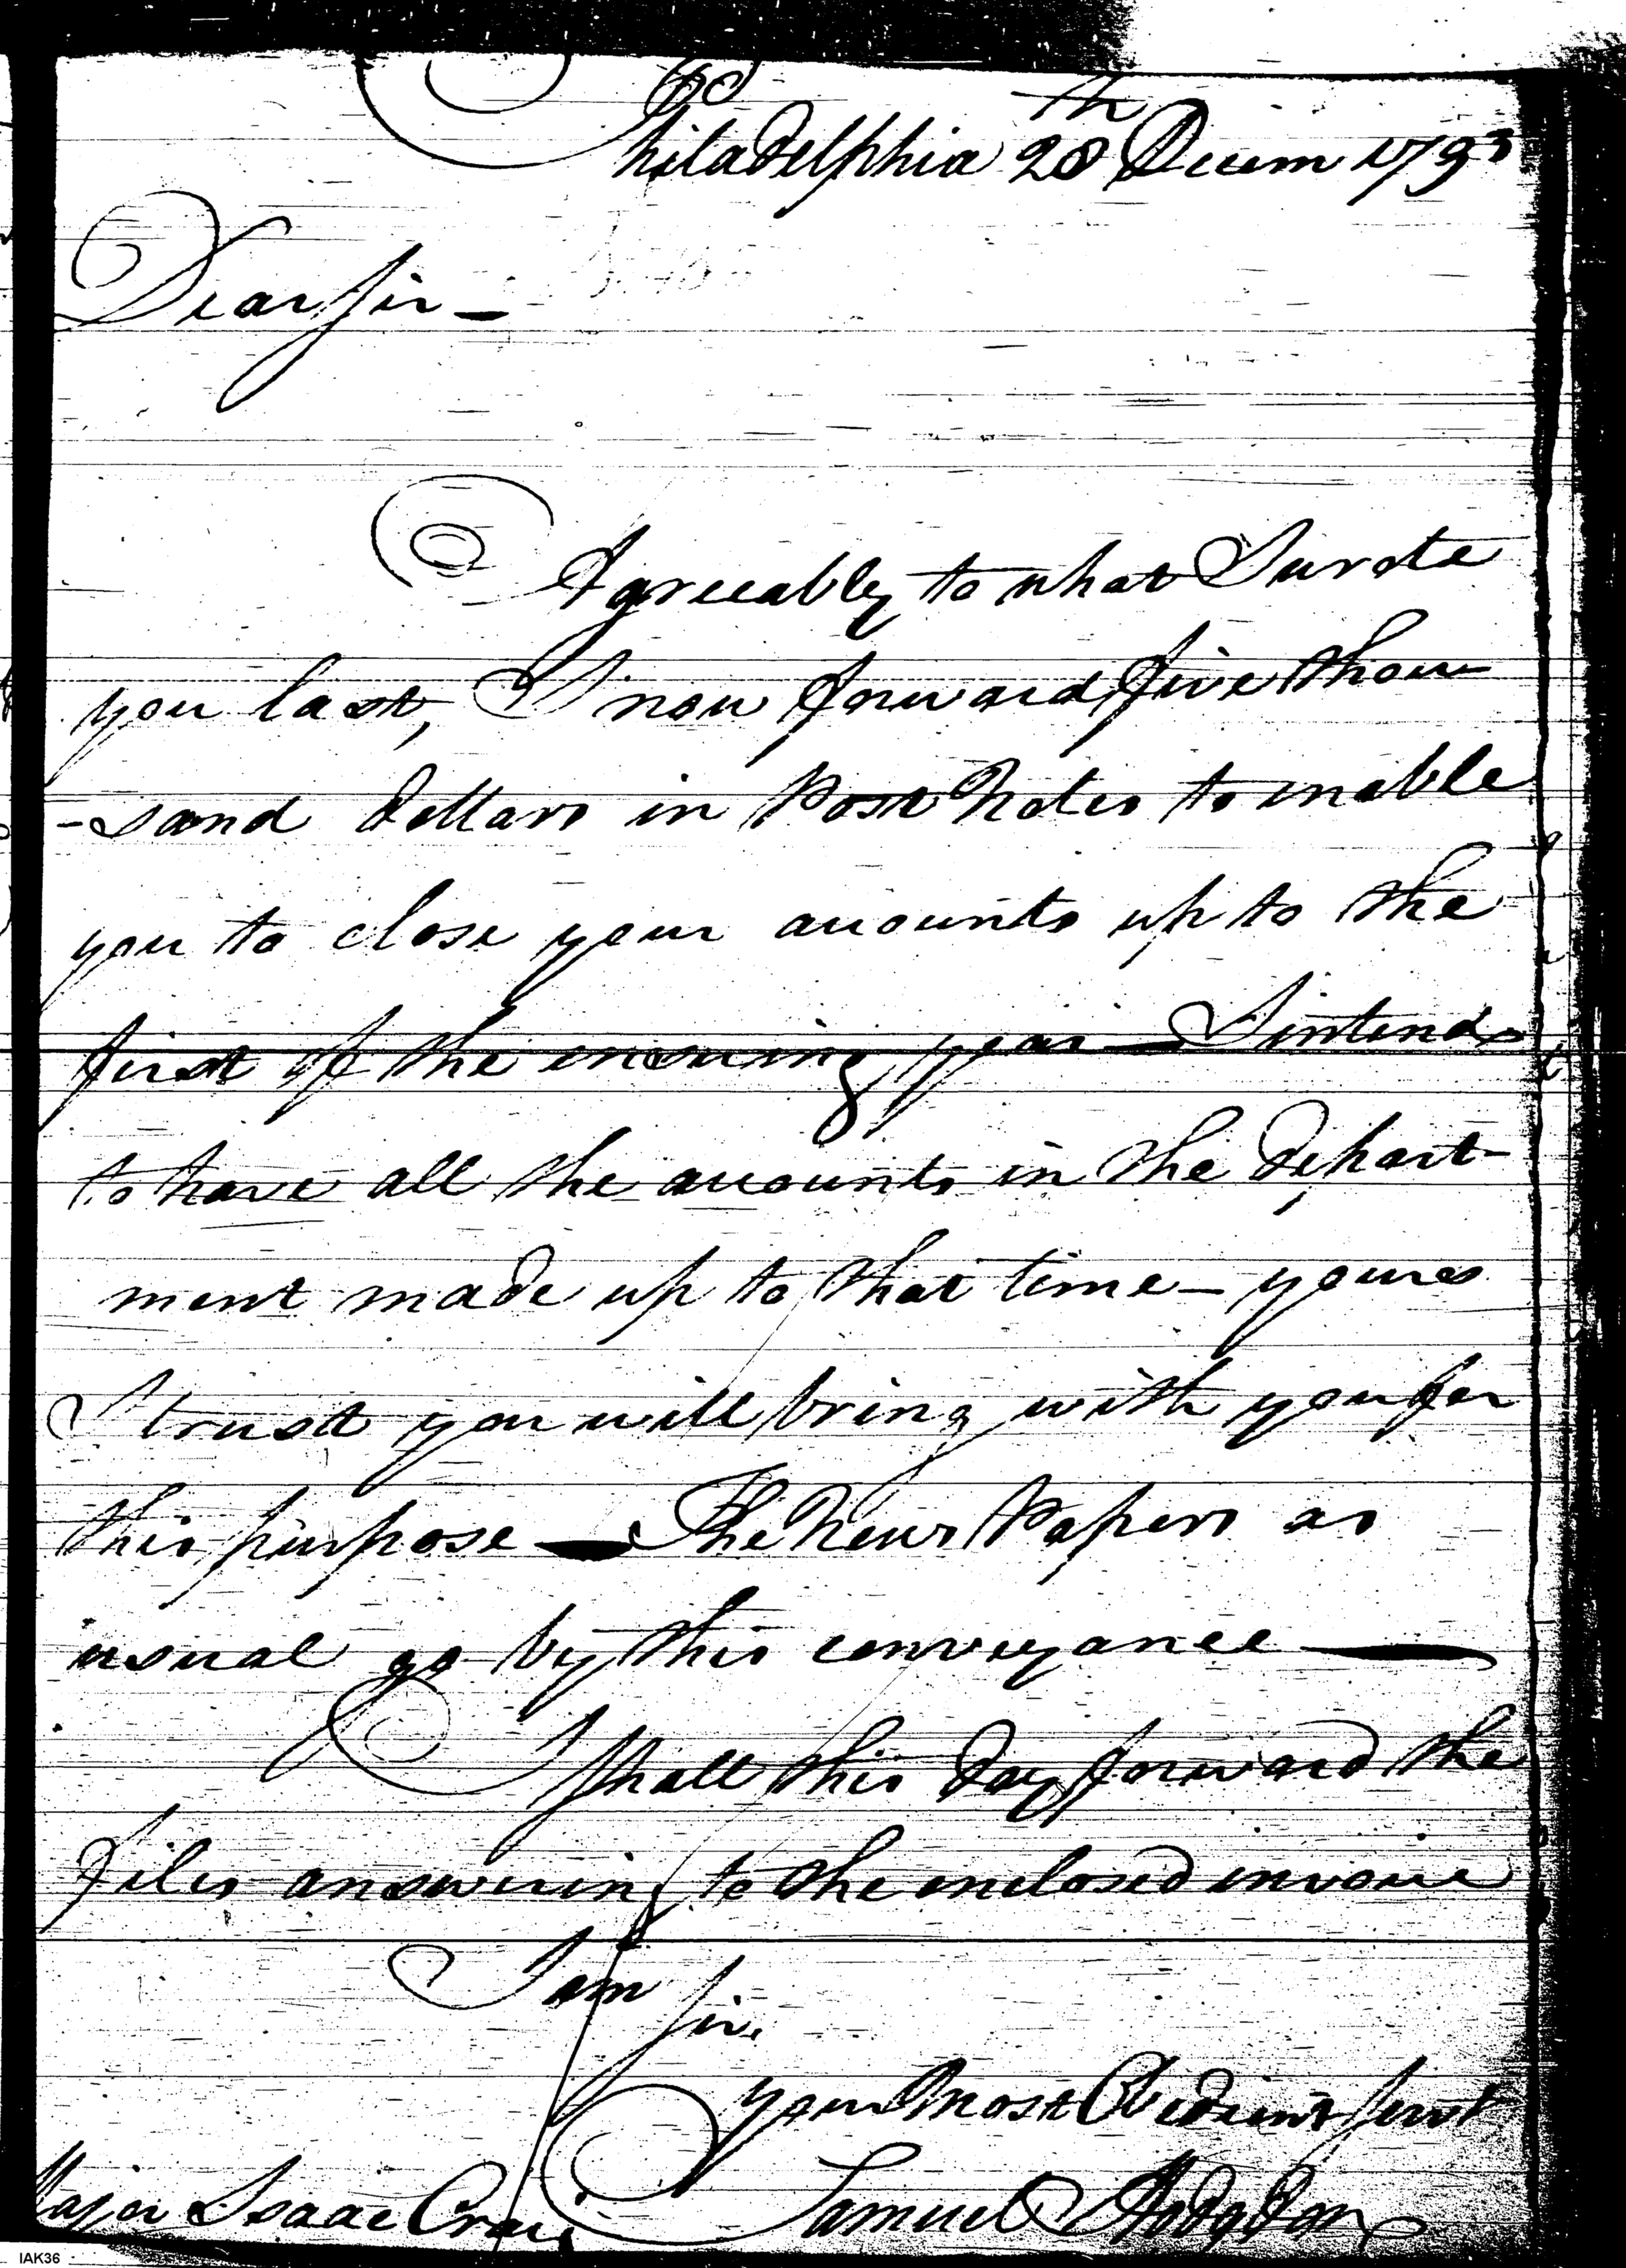 Philadelphia 28th Decem 1793
Dear Sir —
Agreeably to what I wrote
you last, I now forward five thou-
-sand dollars in Post Notes to enable
you to close your accounts up to the
first of the ensuing year — I intend
to have all the accounts in the depart-
ment made up to that time — yours
I trust you will bring with you for
this purpose — The News Papers as
usual go by this conveyance —
I shall this day forward the
files answering to the enclosed invoice
I am
Sir.
your Most Obedient Servt
Samuel Hodgdon
Major Isaac Craig
IAK36